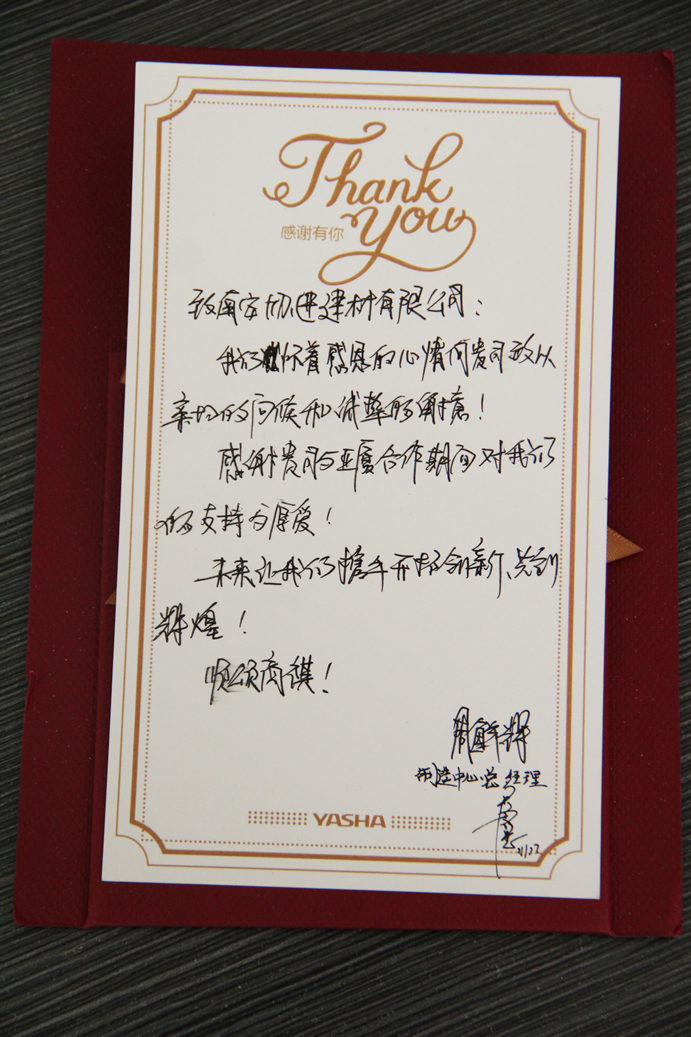 Thank
you
感谢有你
致南京协进建材有限公司：
我们怀着感恩的心情向贵司致以
亲切的问候和诚挚的谢意！
感谢贵司与亚厦合作期间对我们
的支持与厚爱！
未来让我们携手开拓创新、共创
辉煌！
顺颂商祺！
中心总经理
YASHA
11/27